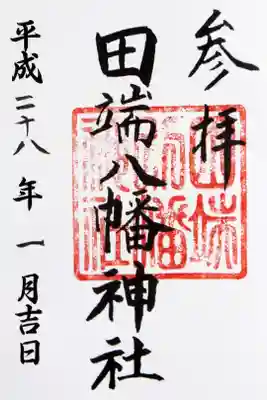 参拝
田端八幡神社
平成二十八年一月吉日